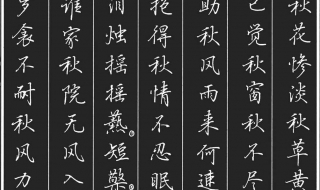 秋花惨淡秋草黄
已觉秋窗秋不尽
助秋风雨来何速
抱得秋情不忍眠
泪烛摇摇爇短檠
谁家秋院无风入
罗衾不耐秋风力